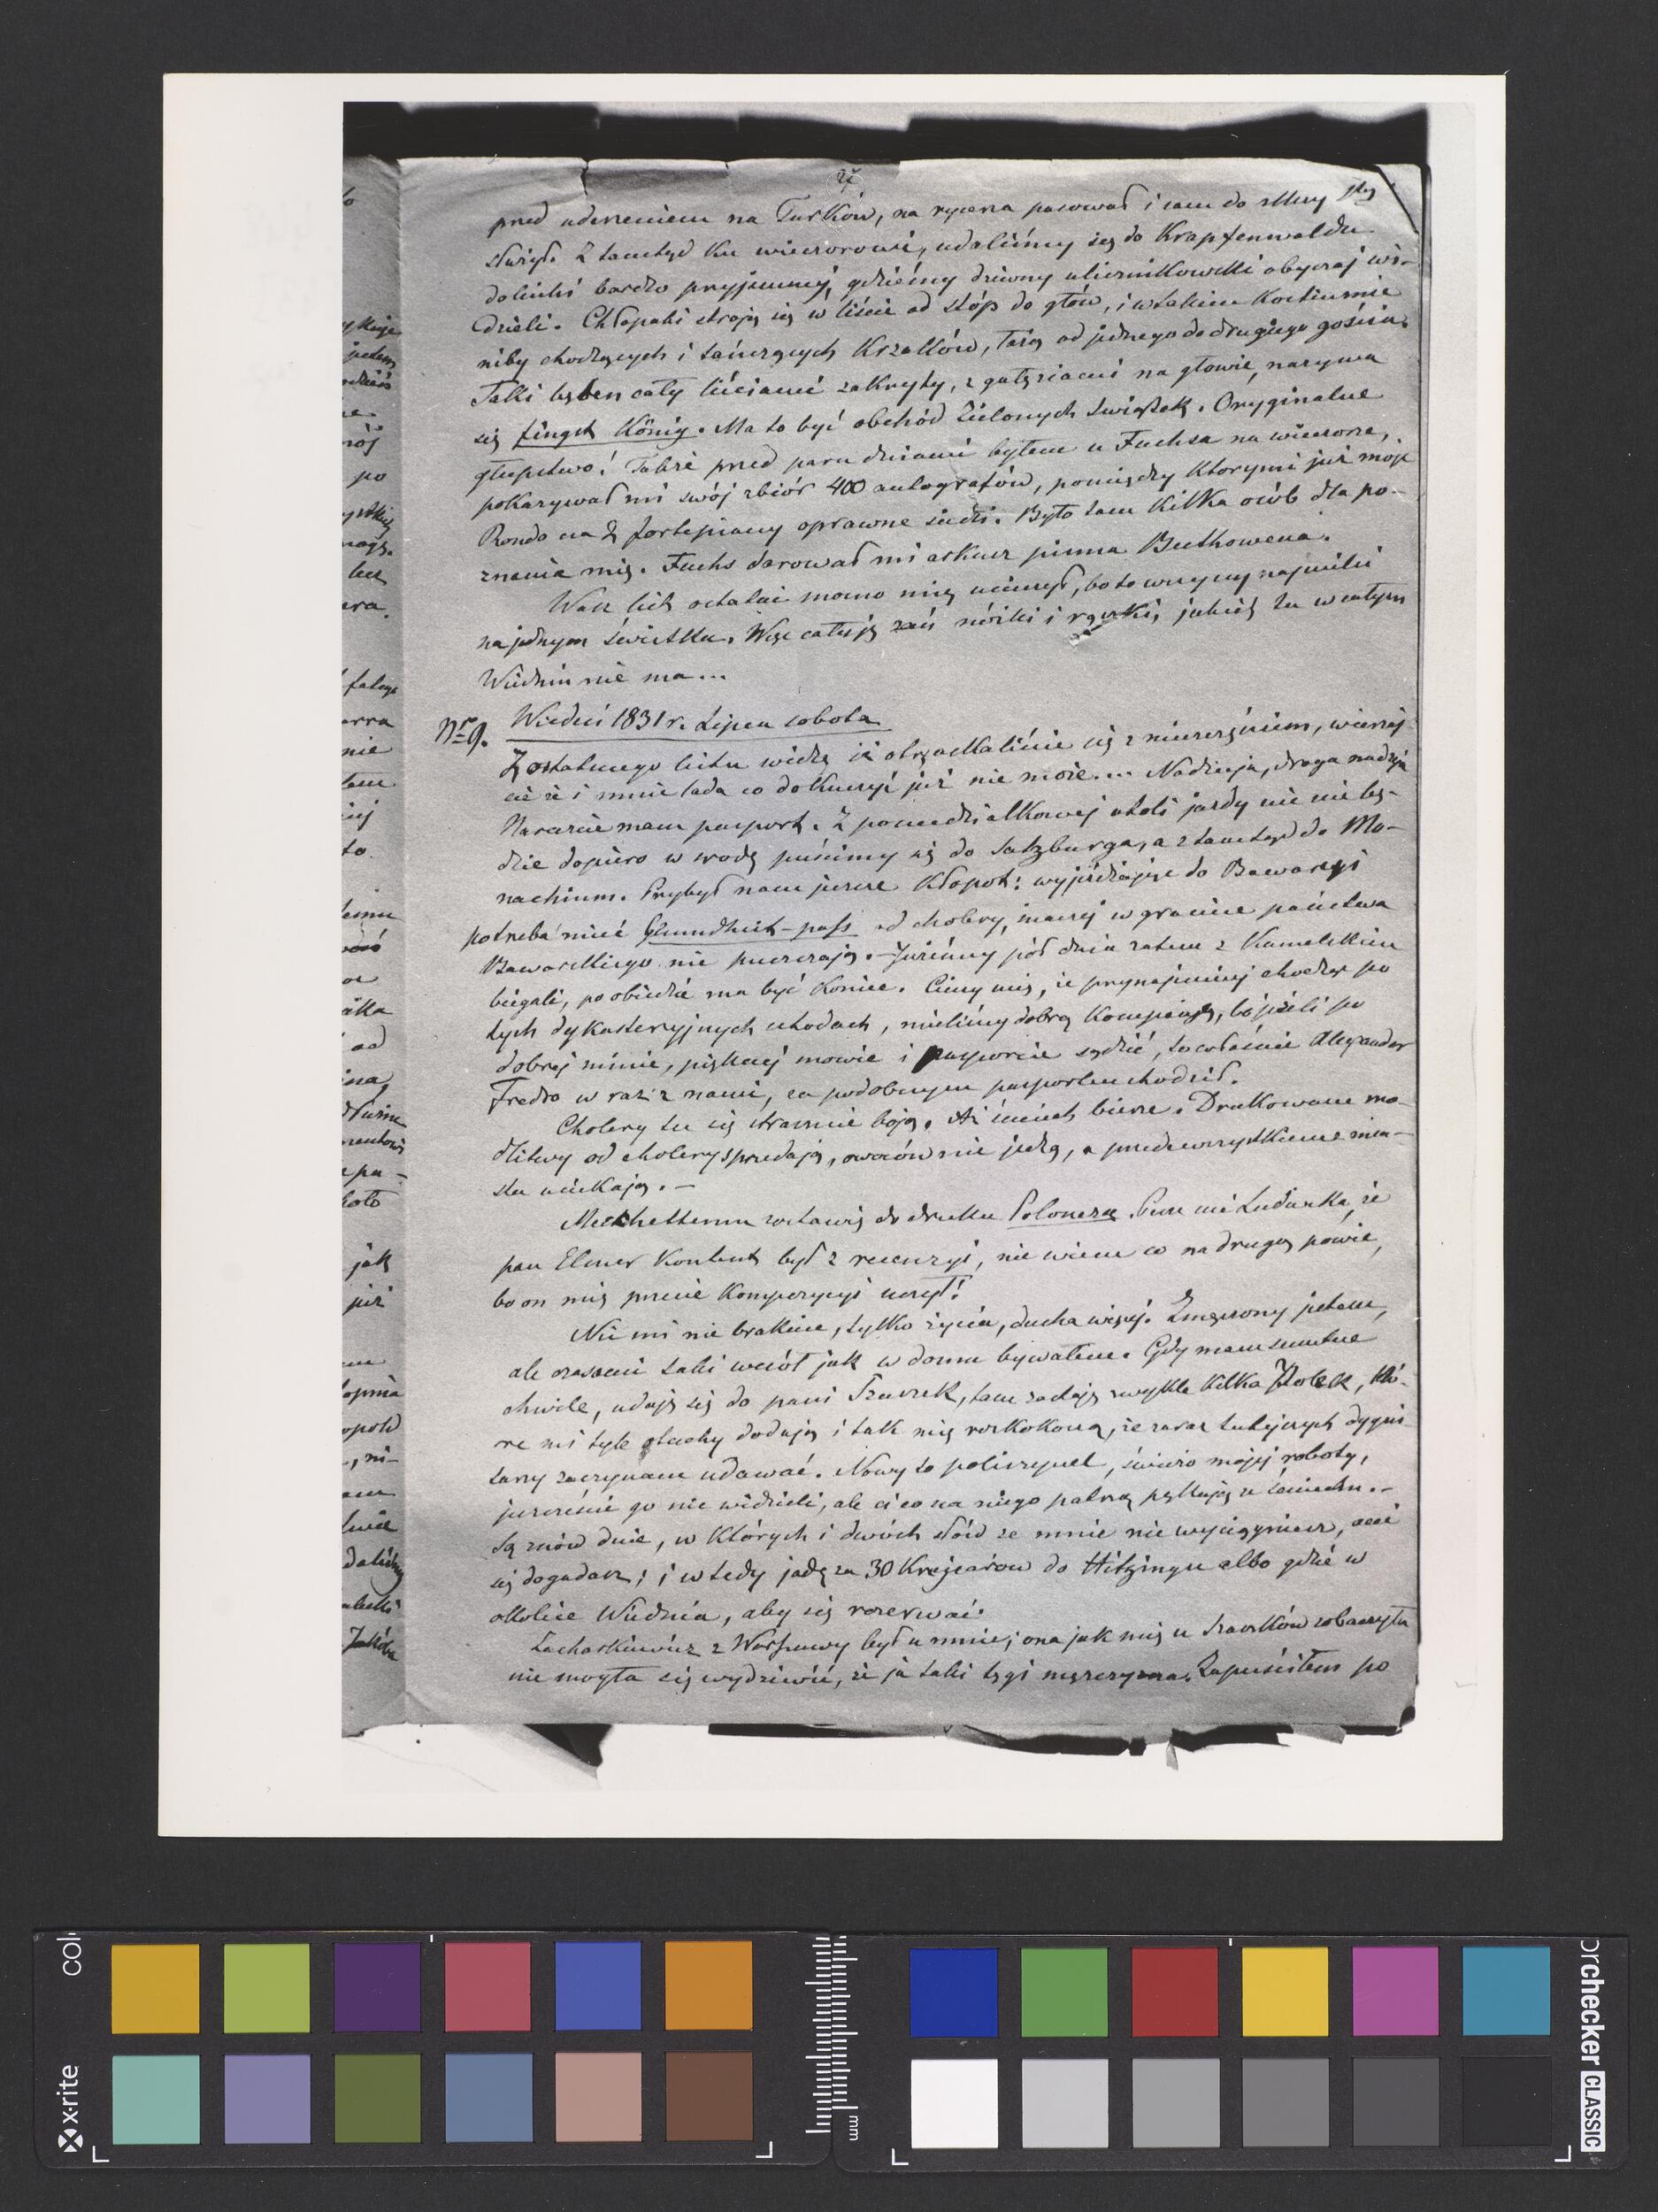 przed uderzeniem na Turków, na rycerza pasował i sam do Mszy Ś-tej
służył. Z tamtąd ku wieczorowi, udaliśmy się do Krapfenwaldu
dolinki bardzo przyjemnéj, gdzieśmy dziwny ulicznikowski obyczaj wi-
dzieli. Chłopaki stroją się w liście od stóp do głów, i w takim kostiumie
niby chodzących i tańczących krzaków, łażą od jednego do drugiego gościa.
Taki bęben cały liściami zakryty, z gałęziami na głowie, nazywa
się fingst König. Ma to być obchód Zielonych Swiątek. Oryginalne
głupstwo! Także przed paru dniami byłem u Fuchsa na wieczorze,
pokazywał mi swój zbiór 400 autografów, pomiędzy któremi już moje
Rondo na 2 fortepiany oprawne siedzi. Było tam kilka osób dla po-
znania mię. Fuchs darował mi arkusz pisma Beethowena.
Wasz list ostatni mocno mię ucieszył, bo to wszyscy najmilsi
na jednym świstku. Więc całuję zaś nóżki i rączki, jakich tu w całym
Wiedniu nie ma...
Nro 9. Wiedeń 1831 r. Lipca sobota
Z ostatniego listu widzę iż otrzaskaliście się z nieszczęściem, wierzaj-
cie że i mnie lada co dokuczyć już nie może... Nadzieja, droga nadzieja
Nareszcie mam paszport. Z poniedziałkowej atoli jazdy nic nie bę-
dzie dopiero w srodę puścimy się do Salzburga, a z tamtąd do Mo-
nachium. Przybył nam jeszcze kłopot: wyjeżdżając do Bawaryi
potrzeba mieć Gesundheit-pass od cholery, inaczej w granice państwa
Bawarskiego nie puszczają. – Jużeśmy pół dnia zatem z Kumelskim
biegali, po obiedzie ma być koniec. Cieszy mię, że przynajmniej chodząc po
tych dykasteryjnych schodach, mieliśmy dobrą kompaniją, bo jeżeli po
dobrej minie, pięknej mowie i paszporcie sądzić, to właśnie Alexander
Fredro w raz z nami, za podobnym paszportem chodził.
Cholery tu się strasznie boją. Aż śmiech bierze. Drukowane mo-
dlitwy od cholery sprzedają, owoców nie jedzą, a przedewszystkiem z mia-
sta uciekają. –
Mechettemu zostawię do druku Poloneza. Pisze mi Ludwika, że
pan Elsner kontent był z recenzyi, nie wiem co na drugą powie,
bo on mię przecie kompozycyi uczył!
Nic mi nie brakuje, tylko życia, ducha więcéj. Zmęczony jestem,
ale czasami taki wesół jak w domu bywałem. Gdy mam smutne
chwile, udaję się do pani Szaszek, tam zastaję zwykle kilka Polek, któ-
re mi tyle otuchy dodają i tak mię rozkokoszą, że zaraz tutejszych dygni-
tarzy zaczynam udawać. Nowy to poliszynel, świeżo mojej roboty,
jeszczeście go nie widzieli, ale ci co na niego patrzą pękają z śmiechu. –
Są znów dnie, w których i dwóch słów ze mnie nie wyciągniesz, ani
się dogadasz; i wtedy jadę za 30 krajcarow do Hitzingu albo gdzie w
okolice Wiednia, aby się rozerwać.
Zacharkiewicz z Warszawy był u mnie; ona jak mię u Szaszków zobaczyła
nie mogła się wydziwić, że ja taki tęgi mężczyzna. Zapuściłem po
x-rite
mm
colorchecker CLASSIC